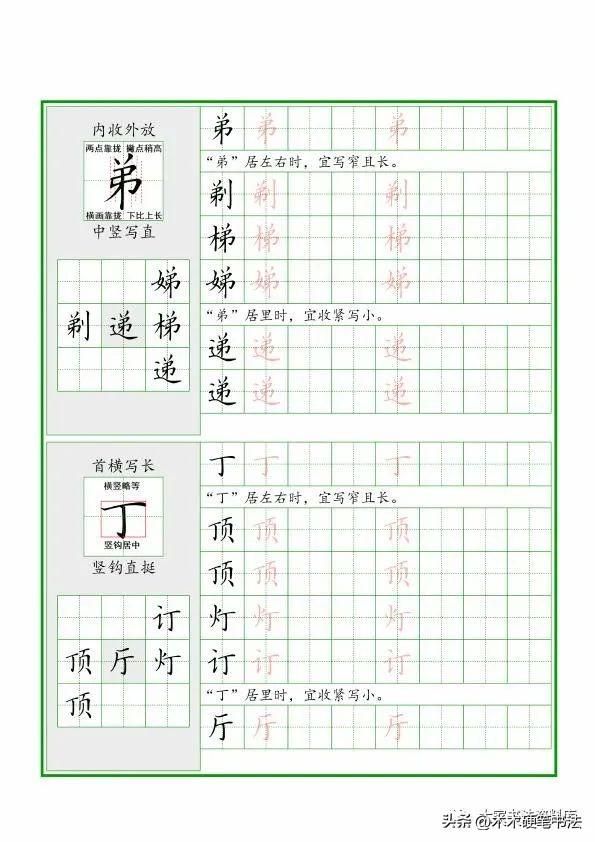 内收外放
两点靠拢 撇点稍高
弟
横画靠拢 下比上长
中竖写直
娣
剃 递 梯
递
弟 弟 弟
“弟”居左右时，宜写窄且长。
剃 剃 剃
梯 梯 梯
娣 娣 娣
“弟”居里时，宜收紧写小。
递 递 递
递 递 递
首横写长
横竖略等
丁
竖钩居中
竖钩直挺
订
顶 厅 灯
顶
丁 丁 丁
“丁”居左右时，宜写窄且长。
顶 顶 顶
顶 顶 顶
灯 灯 灯
订 订 订
“丁”居里时，宜收紧写小。
厅 厅 厅
头条 @木木硬笔书法